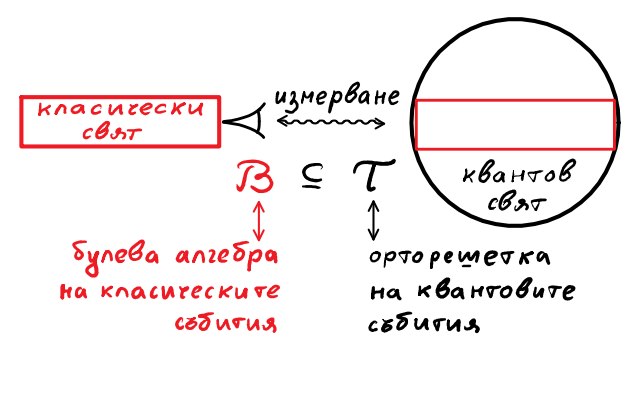 класически
свят
измерване
квантов
свят
B ⊆ T
булева алгебра
на класическите
събития
орторешетка
на квантовите
събития